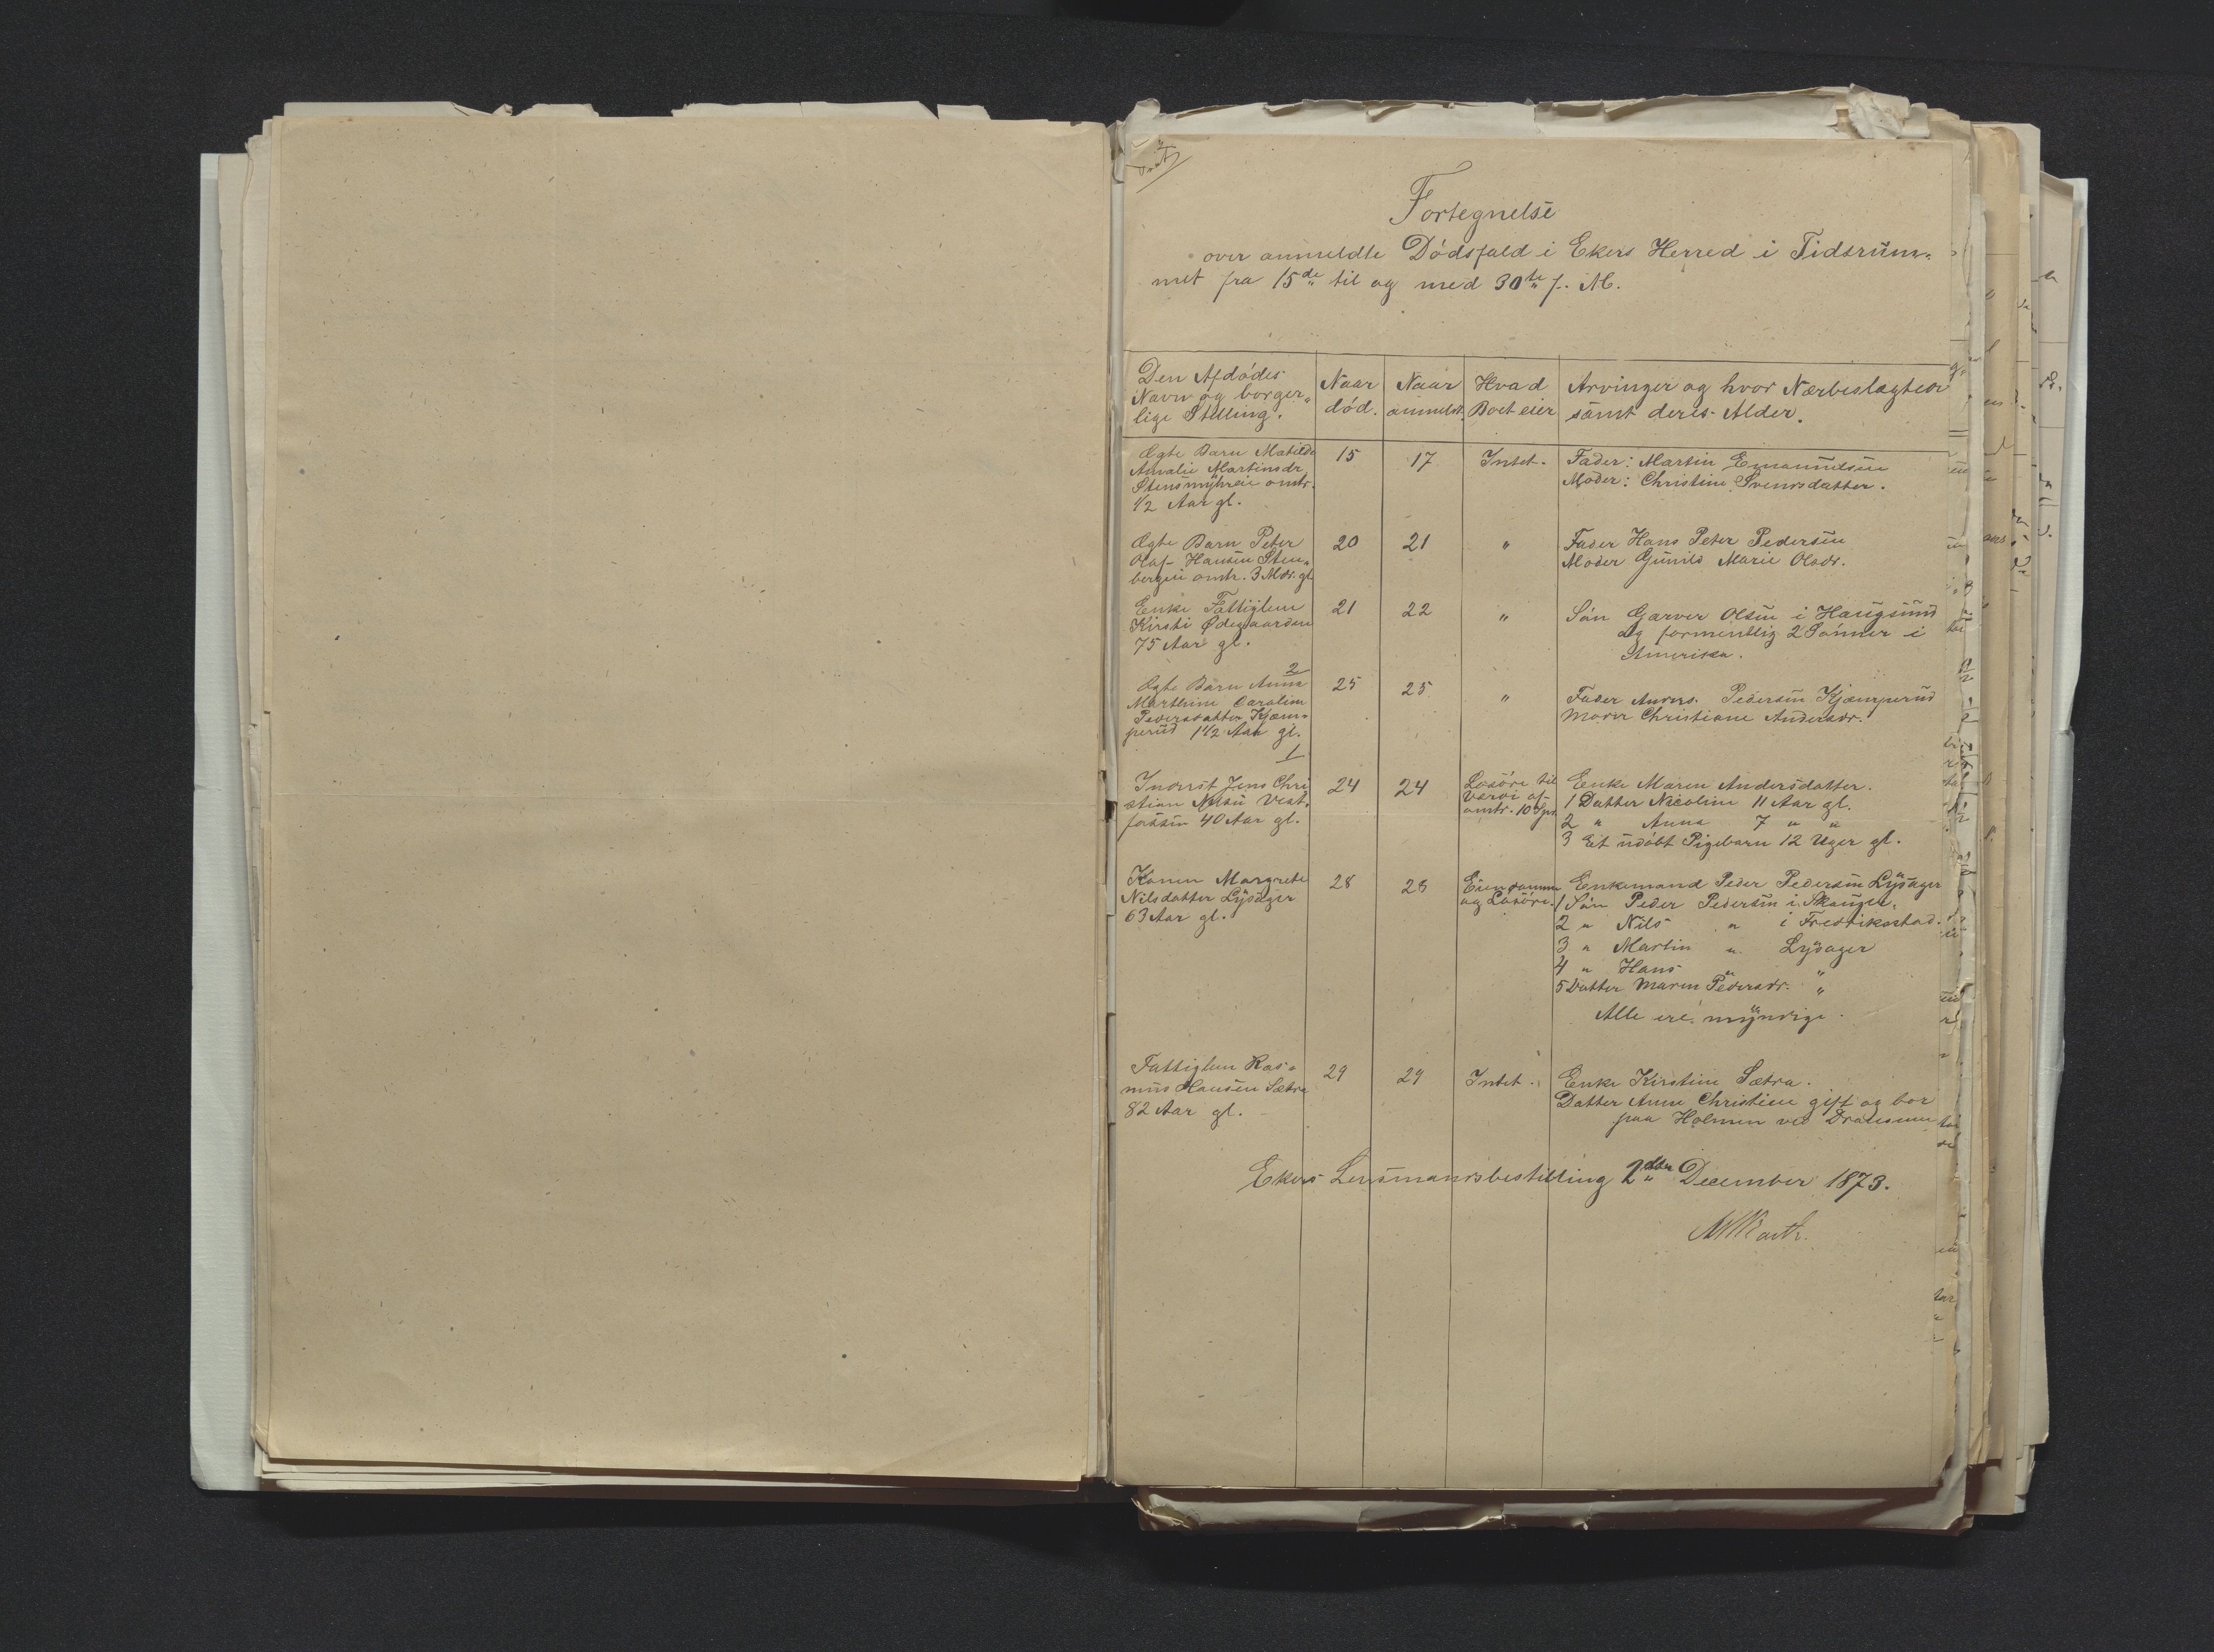 Fortegnelse
over anmeldte Dødsfald i Ekers Herred i Tidsrum-
met fra 15de til og med 30te f. M.
Den Afdødes Navn og borger-
lige Stilling.
Naar død.
Naar anmeldt.
Hvad Boet eier
Arvinger og hvor Nærbeslægtede
samt deres Alder.
Ægte Barn Matilde
Amalie Martinsdr
Stensmyhreie omtr.
1/2 Aar gl.
15
17
Intet.
Fader: Martin Emanuelsen
Moder: Christine Svensdatter.
Ægte Barn Peter
Olaf Hansen Sten-
bergeie omtr. 3 Mdr. gl
20
21
"
Fader Hans Peter Pedersen
Moder Gunild Marie Olsdr.
Enke Fattiglem
Kirsti Ødegaarden
75 Aar gl.
21
22
"
Søn Garver Olsen i Haugsund
og formentlig 2 Sønner i
Amerika.
2
Ægte Barn Anna
Marthine Caroline
Pedersdatter Kjem-
perud 1 1/2 Aar gl.
25
25
"
Fader Anders Pedersen Kjæmperud
Moder Christiane Andersdr.
1
Inderst Jens Chri
stian Nilsen Vest-
fossen 40 Aar gl.
24
24
Løsøre til
Værdi af
omtr. 10 Spd
Enke Maren Andersdatter.
1 Datter Nicoline 11 Aar gl.
2 " Anna 7 " "
3 Et udøbt Pigebarn 12 Uger gl.
Konen Margrete
Nilsdatter Lysager
63 Aar gl.
28
28
Eiendomme
og Løsøre.
Enkemand Peder Pedersen Lysager
1 Søn Peder Pedersen i Skauger.
2 " Nils " i Fredrikstad.
3 " Martin " Lysager
4 " Hans " "
5 Datter Maren Pedersdr. "
Alle ere myndige.
Fattiglem Ras-
mus Hansen Sætra
82 Aar gl.
29
29
Intet.
Enke Kirstine Sætra.
Datter Anne Christine gift og bor
paa Holmen ved Drammen
Ekers Lensmandsbestilling 2den December 1873.